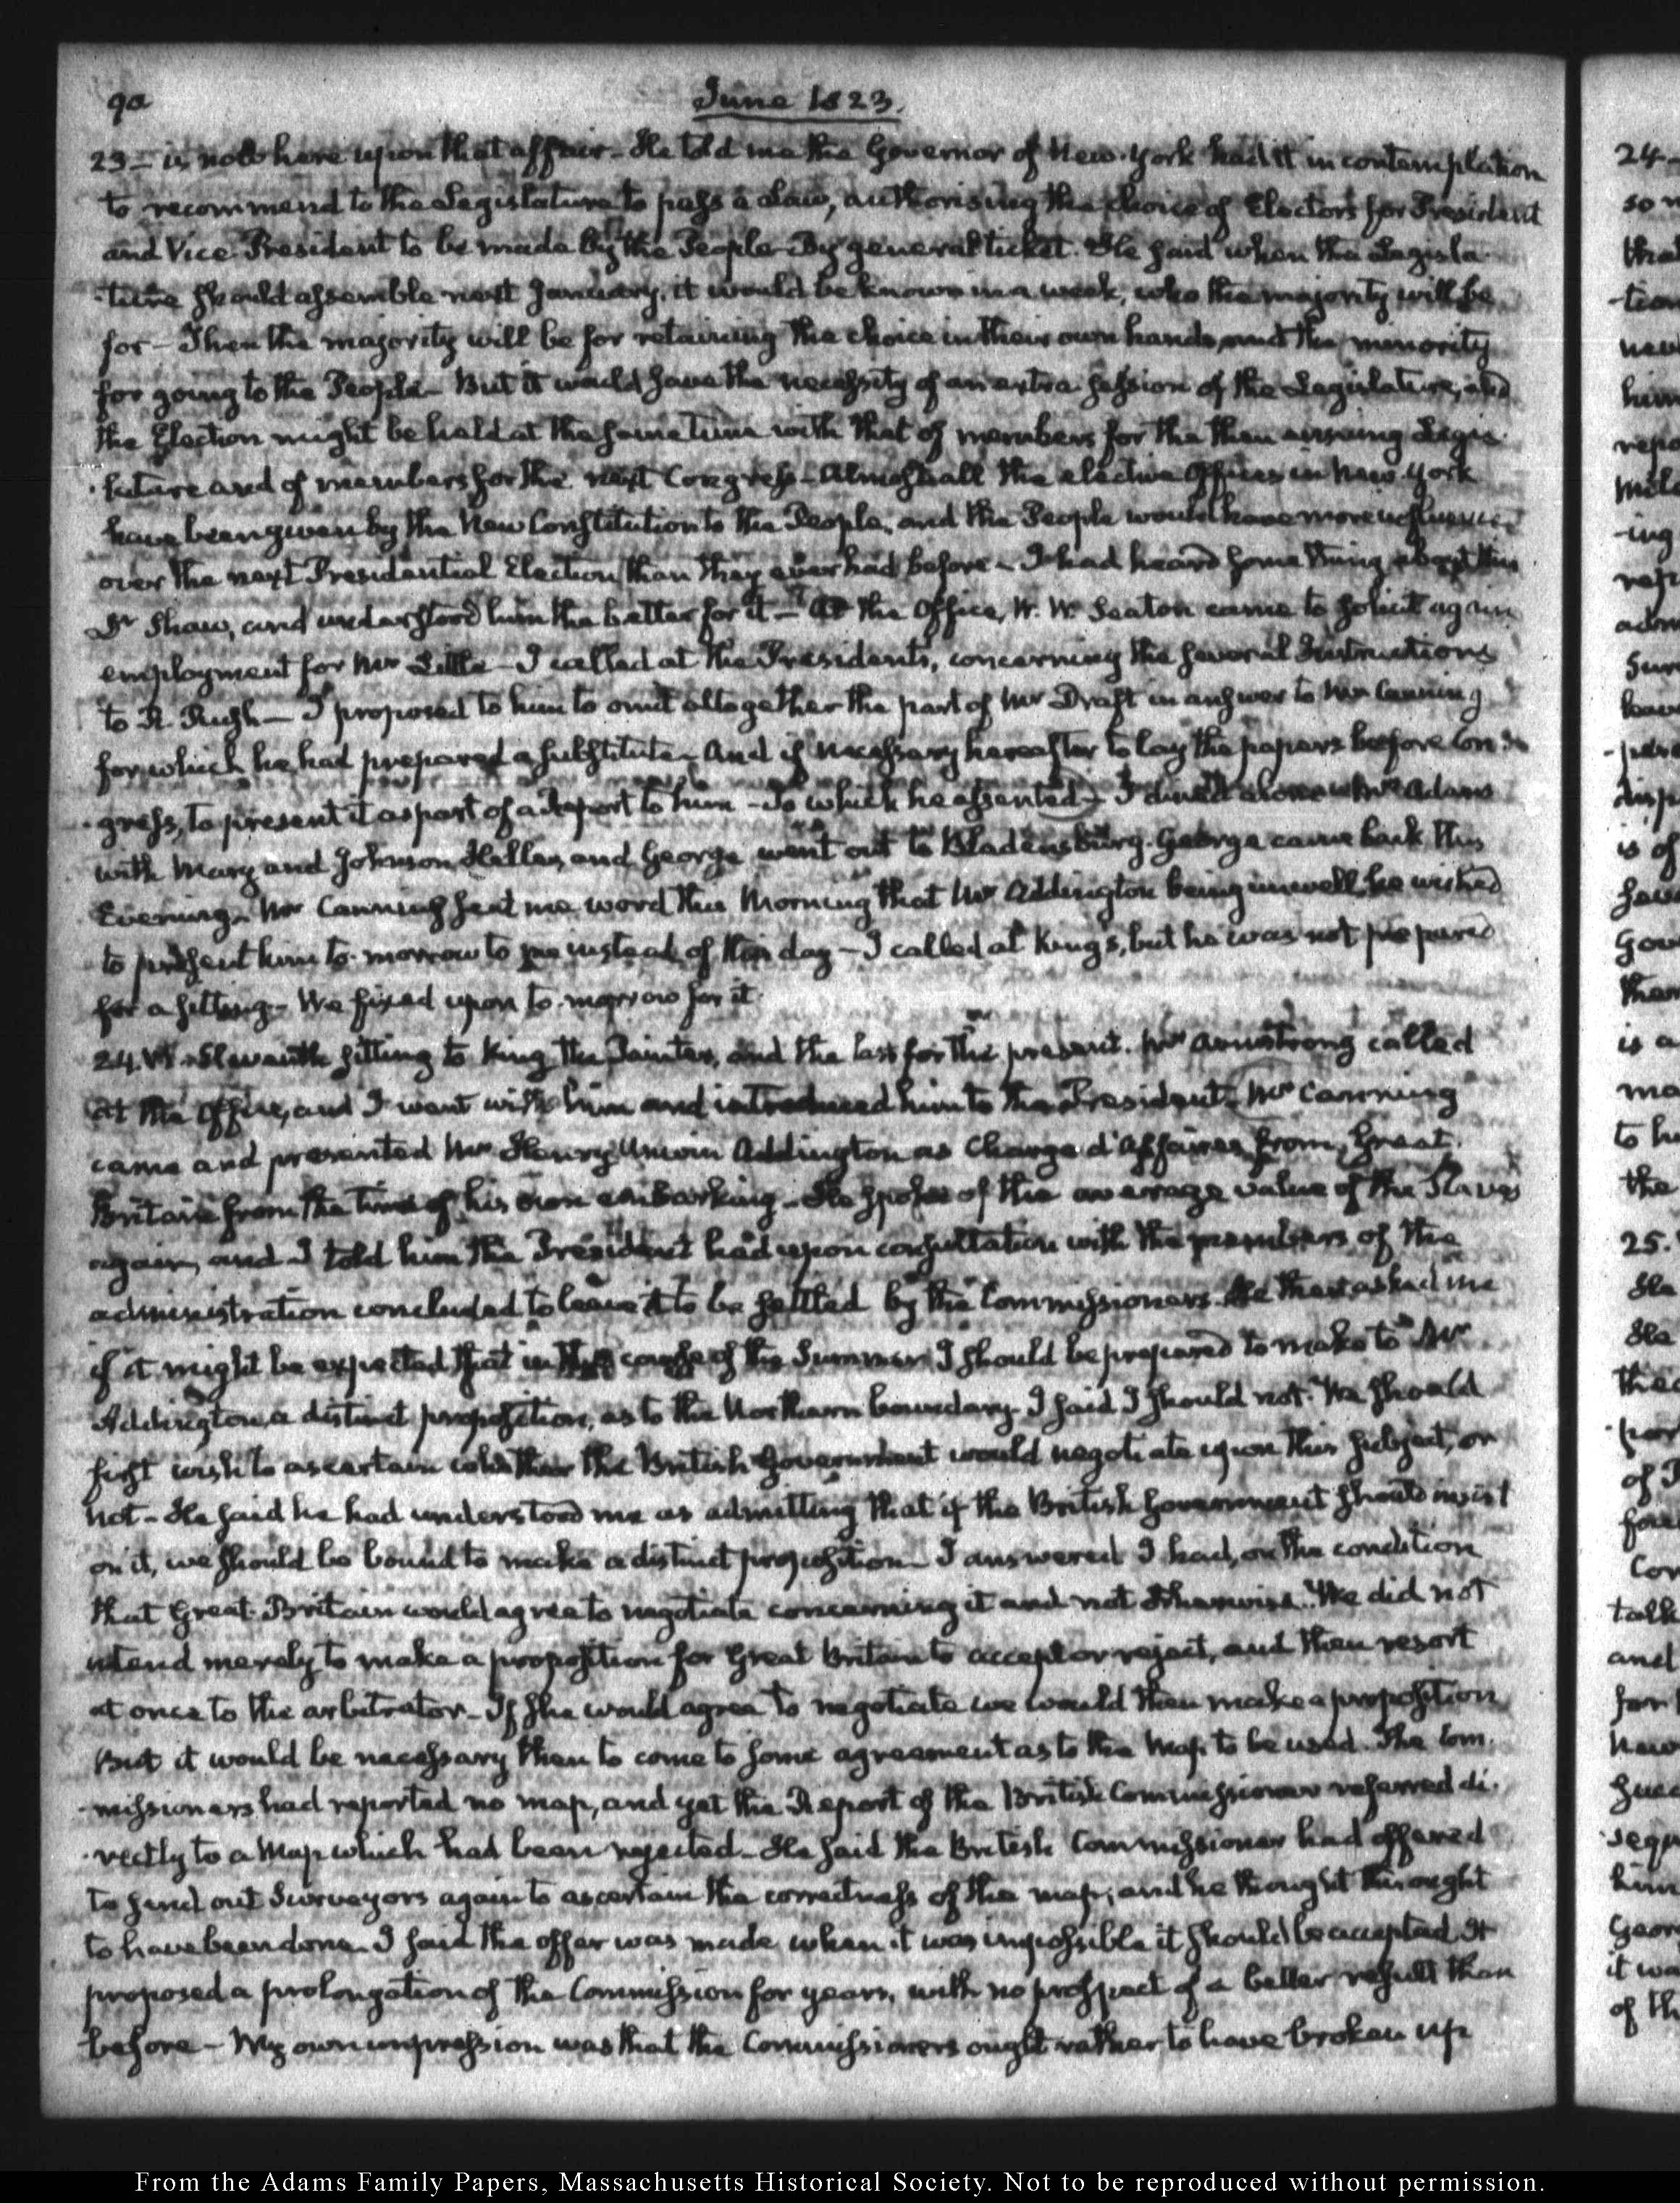 90
June 1823.
23 — is now here upon that affair — He told me the Governor of New-York had it in contemplation
to recommend to the Legislature to pass a Law, authorising the choice of Electors for President
and Vice-President to be made by the People — By general ticket. He said when the Legisla-
-ture should assemble next January, it would be known in a week, who the majority will be
for — Then the majority will be for retaining the choice in their own hands, and the minority
for going to the People — But it would save the necessity of an extra session of the Legislature, and
the Election might be held at the same time with that of members for the then ensuing Legis-
-lature and of members for the next Congress — Almost all the elective Offices in New-York
have been given by the New Constitution to the People, and the People would have more influence
over the next Presidential Election than they ever had before — I had heard something about this
Dr Shaw, and understood him the better for it — At the Office, W. W. Seaton came to solicit again
employment for Mr Little — I called at the Presidents, concerning the several Instructions
to R. Rush — I proposed to him to omit altogether the part of my Draft in answer to Mr Canning
for which he had prepared a substitute — And if necessary hereafter to lay the papers before Con-
-gress, to present it as part of a Report to him — To which he assented — I dined alone Mrs Adams
with Mary and Johnson Hellen, and George went out to Bladensburg. George came back this
Evening. Mr Canning sent me word this Morning that Mr Addington being unwell, he wished
to present him to-morrow to me instead of this day — I called at King's, but he was not prepared
for a sitting — We fixed upon to-morrow for it.
24. VI. Eleventh sitting to King the Painter, and the last for the present. Mr Armstrong called
at the Office, and I went with him and introduced him to the President. Mr Canning
came and presented Mr Henry Unwin Addington as Chargé d'Affaires from Great-
Britain from the time of his own embarking — He spoke of the average value of the Slaves
again, and I told him the President had upon consultation with the members of the
administration concluded to leave it to be settled by the Commissioners. He then asked me
if it might be expected that in the course of the Summer I should be prepared to make to Mr
Addington, a distinct proposition, as to the Northern boundary. I said I should not. We should
first wish to ascertain whether the British Government would negotiate upon this subject, or
not — He said he had understood me as admitting that if the British Government should insist
on it, we should be bound to make a distinct proposition — I answered I had, on the condition
that Great-Britain would agree to negotiate concerning it and not otherwise. We did not
intend merely to make a proposition for Great Britain to accept or reject, and then resort
at once to the arbitrator — If she would agree to negotiate we would then make a proposition
But it would be necessary then to come to some agreement as to the Map to be used. The Com-
-missioners had reported no map, and yet the Report of the British Commissioner referred di-
-rectly to a Map which had been rejected — He said the British Commissioner had offered
to send out Surveyors again to ascertain the correctness of the map; and he thought this ought
to have been done. I said the offer was made when it was impossible it should be accepted. It
proposed a prolongation of the Commission for years, with no prospect of a better result than
before — My own impression was that the Commissioners ought rather to have broken up
From the Adams Family Papers, Massachusetts Historical Society. Not to be reproduced without permission.